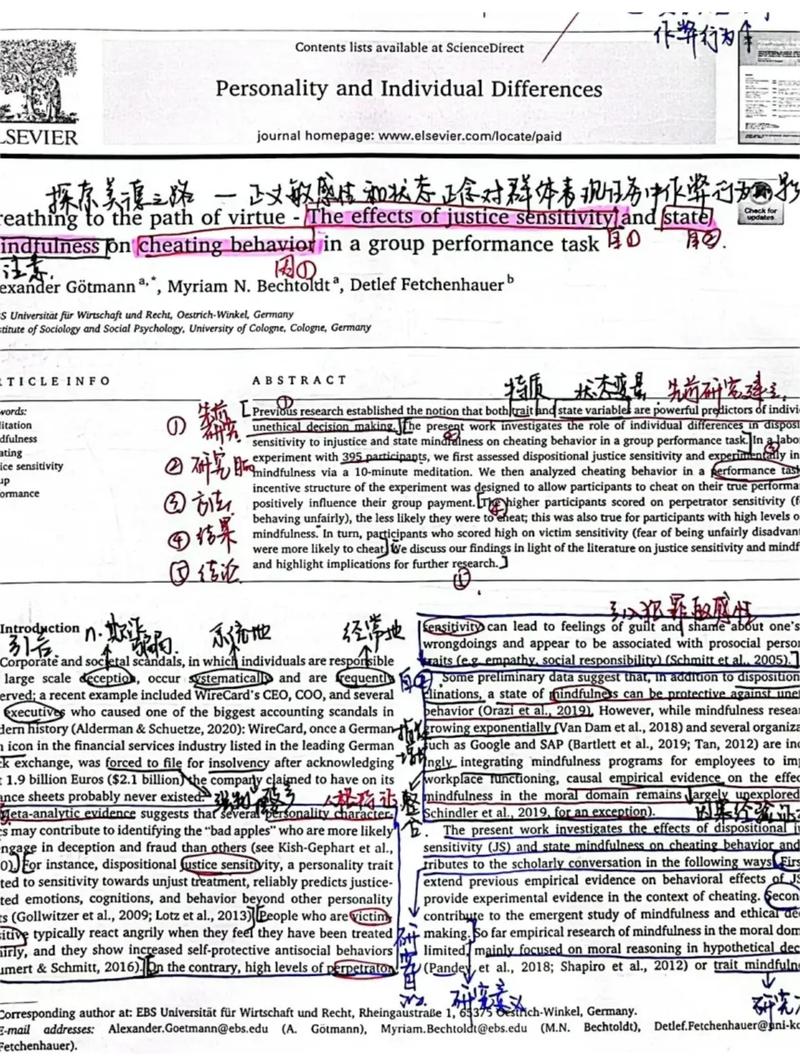 作弊行为
Contents lists available at ScienceDirect
Personality and Individual Differences
ELSEVIER
journal homepage: www.elsevier.com/locate/paid
探索美德之路 — 正义敏感性和状态正念对群体表现任务中作弊行为的影
reathing to the path of virtue - The effects of justice sensitivity and state
indfulness on cheating behavior in a group performance task 自① 自②.
Check for updates
注意. 因①
exander Götmann a,*, Myriam N. Bechtoldt a, Detlef Fetchenhauer b
S Universität für Wirtschaft und Recht, Oestrich-Winkel, Germany
stitute of Sociology and Social Psychology, University of Cologne, Cologne, Germany
TICLE INFO
words:
itation
dfulness
ating
ice sensitivity
up
ormance
① 先前研究
② 研究目的
③ 方法
④ 结果
⑤ 结论
ABSTRACT
特质 状态变量 先前研究建立
Previous research established the notion that both trait and state variables are powerful predictors of indivi
unethical decision making. The present work investigates the role of individual differences in disposi
sensitivity to injustice and state mindfulness on cheating behavior in a group performance task. In a labo
experiment with 395 participants, we first assessed dispositional justice sensitivity and experimentally in
mindfulness via a 10-minute meditation. We then analyzed cheating behavior in a performance tas
incentive structure of the experiment was designed to allow participants to cheat on their true performa
positively influence their group payment. The higher participants scored on perpetrator sensitivity (f
behaving unfairly), the less likely they were to cheat; this was also true for participants with high levels o
mindfulness. In turn, participants who scored high on victim sensitivity (fear of being unfairly disadvan
were more likely to cheat. We discuss our findings in light of the literature on justice sensitivity and mindf
and highlight implications for further research.
Introduction
引言 n. 欺诈 系统地 经常地
Corporate and societal scandals, in which individuals are responsible
large scale deception, occur systematically and are frequently
erved; a recent example included WireCard's CEO, COO, and several
executives who caused one of the biggest accounting scandals in
dern history (Alderman & Schuetze, 2020): WireCard, once a German
n icon in the financial services industry listed in the leading German
k exchange, was forced to file for insolvency after acknowledging
t 1.9 billion Euros ($2.1 billion) the company claimed to have on its
ance sheets probably never existed.
人格特征
Meta-analytic evidence suggests that several personality character-
cs may contribute to identifying the "bad apples" who are more likely
ngage in deception and fraud than others (see Kish-Gephart et al.,
0). For instance, dispositional justice sensitivity, a personality trait
ted to sensitivity towards unjust treatment, reliably predicts justice-
ted emotions, cognitions, and behavior beyond other personality
ts (Gollwitzer et al., 2009; Lotz et al., 2013). People who are victim
sitive typically react angrily when they feel they have been treated
airly, and they show increased self-protective antisocial behaviors
umert & Schmitt, 2016). On the contrary, high levels of perpetrator
犯罪敏感性
sensitivity can lead to feelings of guilt and shame about one's
wrongdoings and appear to be associated with prosocial person
traits (e.g. empathy, social responsibility) (Schmitt et al., 2005).
自②
Some preliminary data suggest that, in addition to disposition
dlinations, a state of mindfulness can be protective against une
behavior (Orazi et al., 2019). However, while mindfulness resea
growing exponentially (Van Dam et al., 2018) and several organiza
such as Google and SAP (Bartlett et al., 2019; Tan, 2012) are inc
ngly integrating mindfulness programs for employees to imp
workplace functioning, causal empirical evidence on the effec
mindfulness in the moral domain remains largely unexplored
Schindler et al., 2019, for an exception).
因果经验证
指数增
整合
The present work investigates the effects of dispositional j
sensitivity (JS) and state mindfulness on cheating behavior and
tributes to the scholarly conversation in the following ways. Firs
extend previous empirical evidence on behavioral effects of JS
provide experimental evidence in the context of cheating. Secon
contribute to the emergent study of mindfulness and ethical de
making. So far empirical research of mindfulness in the moral dom
limited, mainly focused on moral reasoning in hypothetical dec
(Pandey et al., 2018; Shapiro et al., 2012) or trait mindfuln
研究目
研究意义
研究
Corresponding author at: EBS Universität für Wirtschaft und Recht, Rheingaustraße 1, 65375 Oestrich-Winkel, Germany.
E-mail addresses: Alexander.Goetmann@ebs.edu (A. Götmann), Myriam.Bechtoldt@ebs.edu (M.N. Bechtoldt), Detlef.Fetchenhauer@uni-ko
Fetchenhauer).